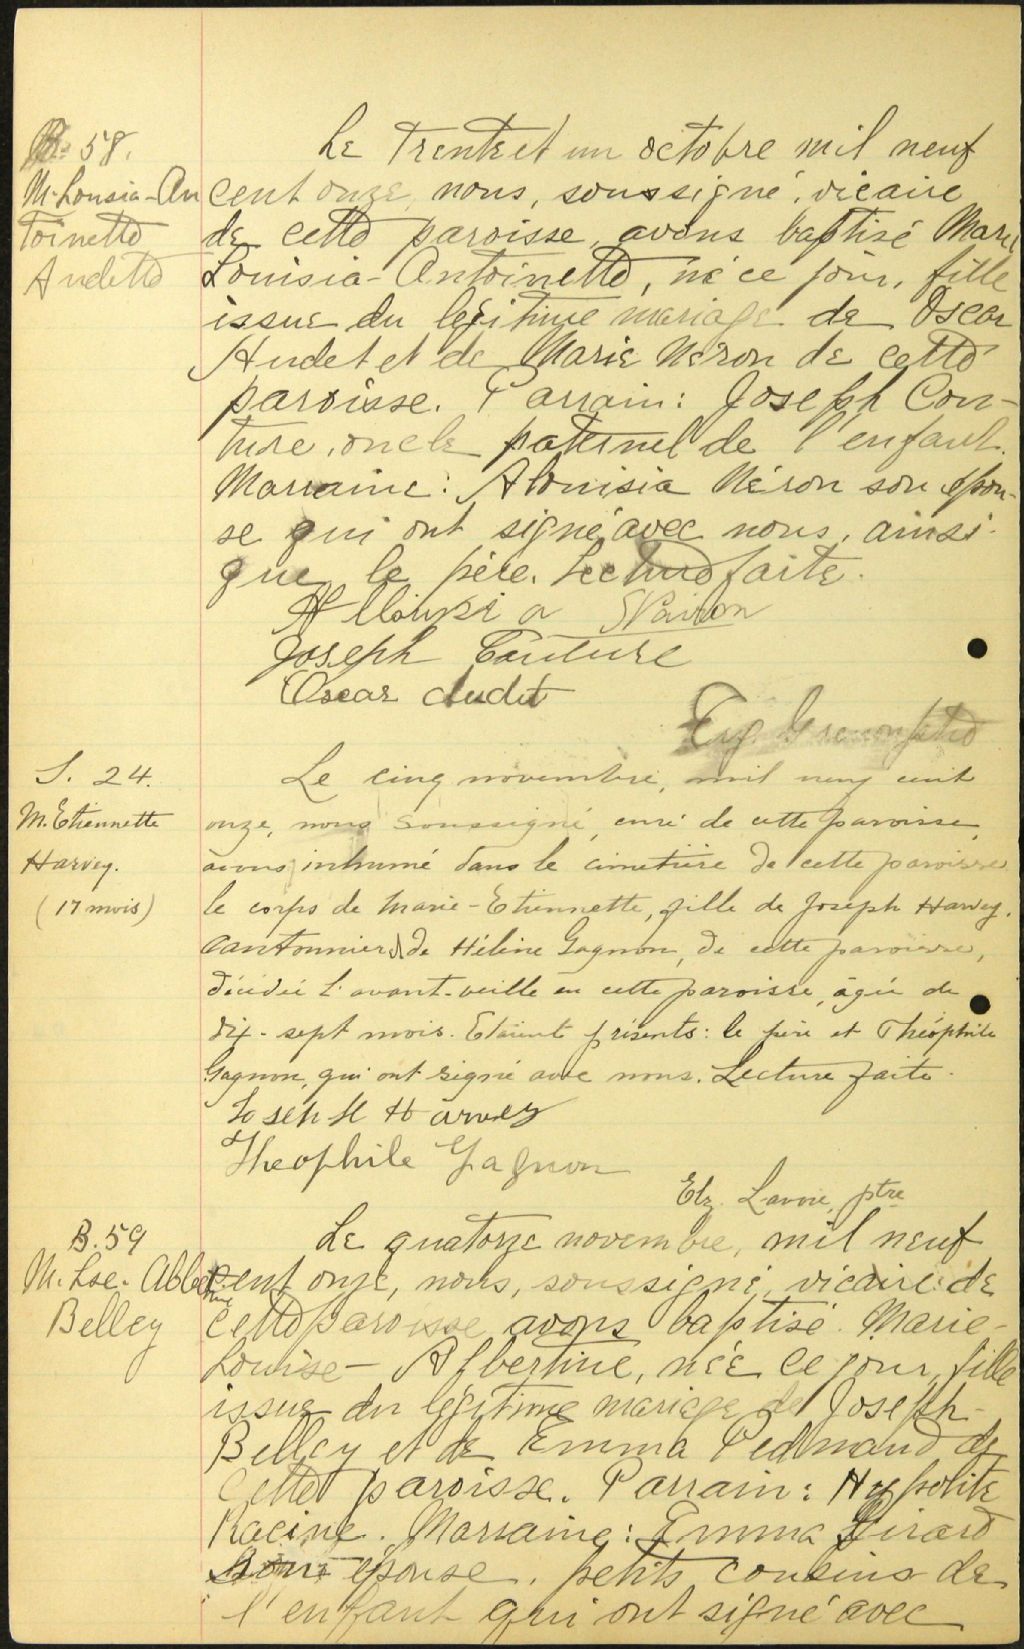 B. 58.
M. Lousia-An
toinette
Audette
Le trente et un octobre mil neuf
cent onze, nous, soussigné, vicaire
de cette paroisse, avons baptisé Marie
Louisia-Antoinette, né ce jour, fille
issue du légitime mariage de Oscar
Audet et de Marie Néron de cette
paroisse. Parrain: Joseph Cou-
ture, oncle paternel de l'enfant.
Marraine: Alouisia Néron son épou-
se qui ont signé avec nous, ainsi
que le père. Lecture faite.
Allouisia Nairon
Joseph Couture
Oscar Audet
Eug. Grenon ptre
S. 24.
M. Etiennette
Harvey.
(17 mois)
Le cinq novembre, mil neuf cent
onze, nous soussigné, curé de cette paroisse,
avons inhumé dans le cimetière de cette paroisse
le corps de Marie-Etiennette, fille de Joseph Harvey,
cantonnier & de Hélène Gagnon, de cette paroisse,
décédée l'avant-veille en cette paroisse, âgée de
dix-sept mois. Etaient présents: le père et Théophile
Gagnon, qui ont signé avec nous. Lecture faite.
Joseph Harvey
Theophile Gagnon
Elz. Lavoie, ptre
B. 59
M. Lse. Albertine
Belley
Le quatorze novembre, mil neuf
cent onze, nous, soussigné, vicaire de
cette paroisse avons baptisé Marie-
Louise-Albertine, née ce jour, fille
issue du légitime mariage de Joseph
Belley et de Emma Pedneaud de
cette paroisse. Parrain: Hypolite
Racine. Marraine: Emma Girard
son épouse, petits cousins de
l'enfant qui ont signé avec